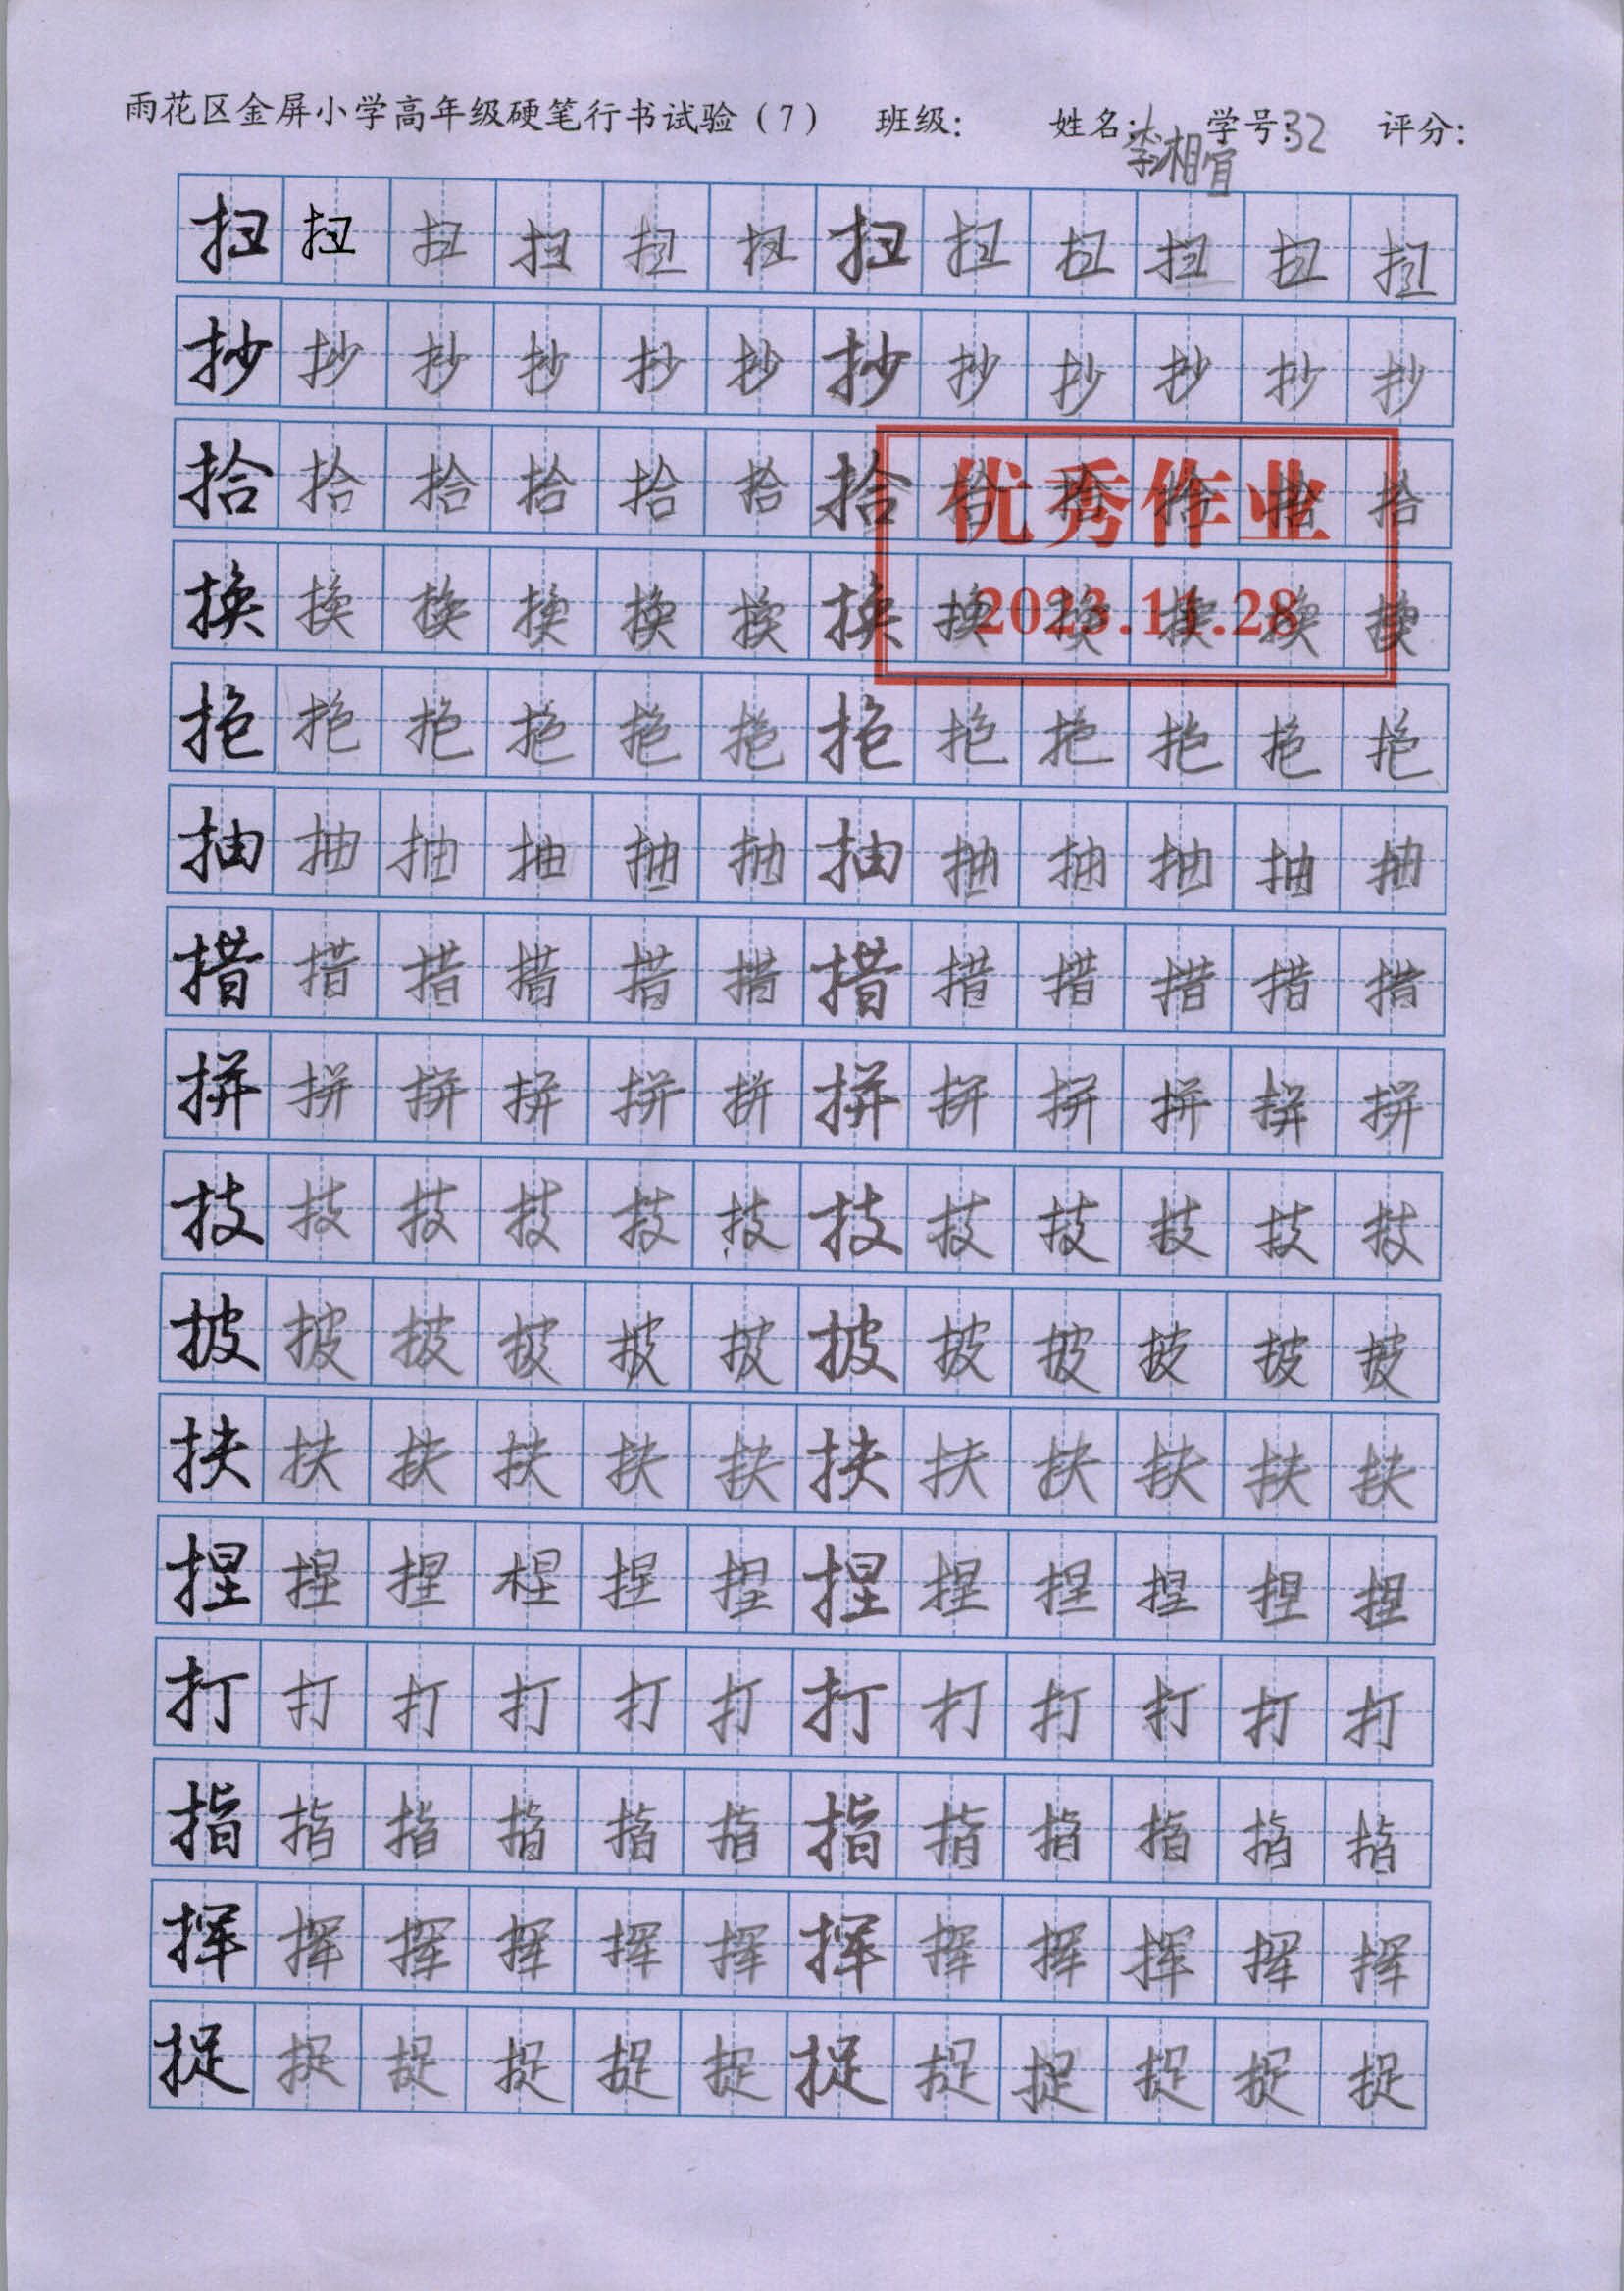 雨花区金屏小学高年级硬笔行书试验（7） 班级： 姓名：李相宜 学号：32 评分：
扭扭扭扭扭扭扭扭扭扭扭扭
抄抄抄抄抄抄抄抄抄抄抄抄
拾拾拾拾拾拾拾拾拾拾拾拾
优秀作业
换换换换换换换换换换换换
2023.11.28
抱抱抱抱抱抱抱抱抱抱抱抱
抽抽抽抽抽抽抽抽抽抽抽抽
措措措措措措措措措措措措
拼拼拼拼拼拼拼拼拼拼拼拼
技技技技技技技技技技技技
披披披披披披披披披披披披
扶扶扶扶扶扶扶扶扶扶扶扶
捏捏捏捏捏捏捏捏捏捏捏捏
打打打打打打打打打打打打
指指指指指指指指指指指指
挥挥挥挥挥挥挥挥挥挥挥挥
捉捉捉捉捉捉捉捉捉捉捉捉